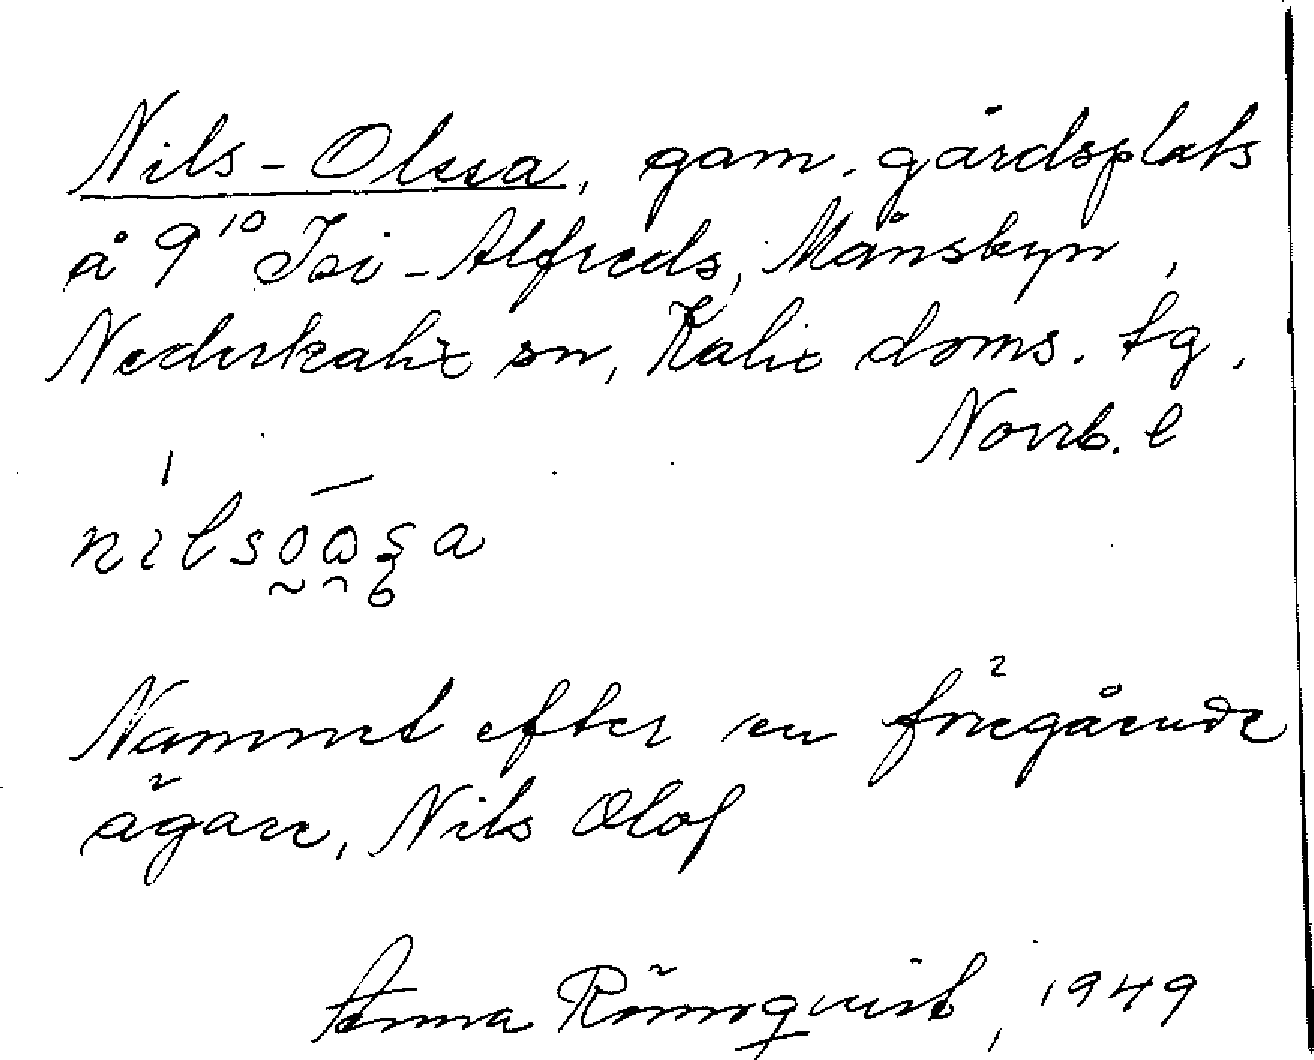 Nils-Olssa, gam. gårdsplats
å 9¹⁰ Isi-Alfreds, Månsbyn,
Nederkalix sn, Kalix doms. tg,
Norrb. l
Namnet efter en föregående
ägare, Nils Olof
Anna Römqvist, 1949